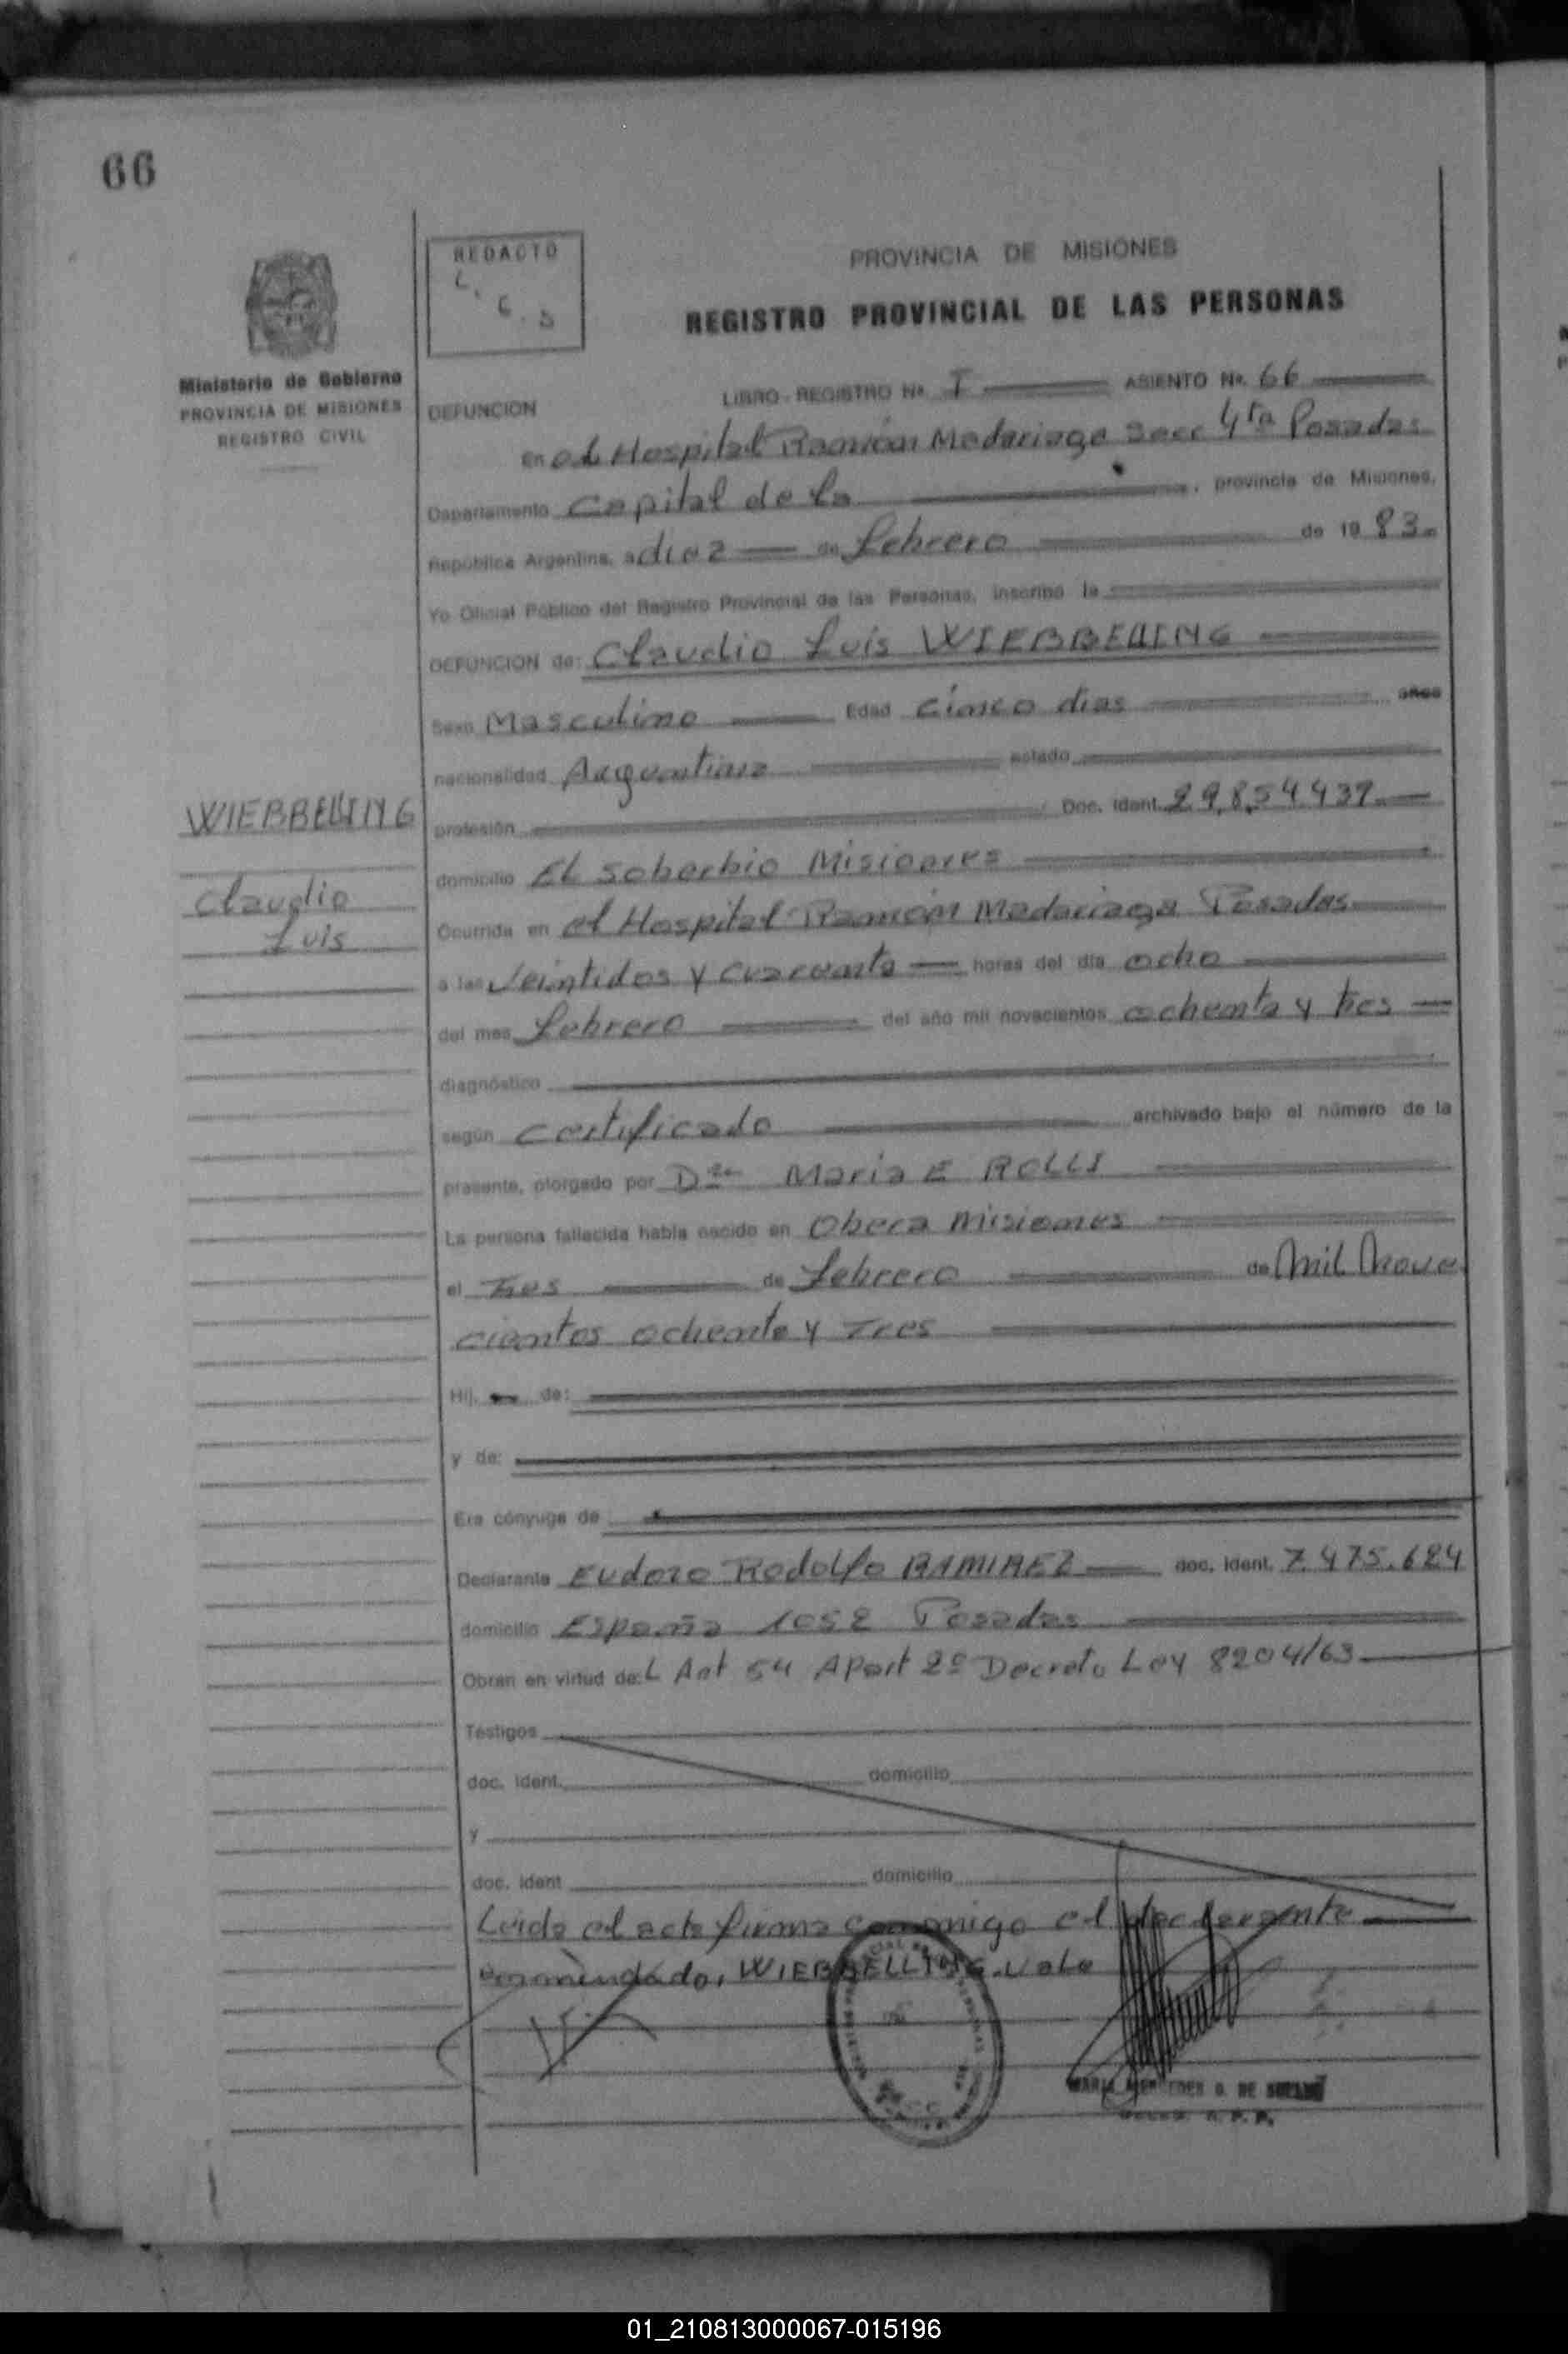 66
REDACTO
PROVINCIA DE MISIONES
REGISTRO PROVINCIAL DE LAS PERSONAS
Ministerio de Gobierno
PROVINCIA DE MISIONES
REGISTRO CIVIL
LIBRO - REGISTRO Nº I ASIENTO Nº. 66
DEFUNCION
En el Hospital Ramón Madariaga Secc 4ta Posadas
Departamento Capital de la , provincia de Misiones,
República Argentina, a diez de febrero de 19 83
Yo Oficial Público del Registro Provincial de las Personas, inscribo la
DEFUNCION de: Claudio Luis WIEBBELLING
Sexo Masculino Edad cinco dias años
nacionalidad Argentina estado
WIEBBELLING
profesión Doc. Ident. 29.854.437
domicilio El Soberbio Misiones
Claudio
Luis
Ocurrida en el Hospital Ramón Madariaga Posadas
a las veintidos y cuarenta horas del día ocho
del mes febrero del año mil novecientos ochenta y tres
diagnóstico
según certificado archivado bajo el número de la
presente, otorgado por Dra Maria E ROLLI
La persona fallecida había nacido en Obera Misiones
el tres de febrero de Mil Nove
cientos ochenta y tres
Hij. de:
y de:
Era cónyuge de
Declarante Eudoro Rodolfo RAMIREZ doc. ident. 7.475.684
domicilio España 1052 Posadas
Obran en virtud de: L Art 54 Apart 2º Decreto Ley 8204/63
Testigos
doc. ident. domicilio
y
doc. ident domicilio
Leida el acta firma conmigo el declarante
enmendado, WIEBBELLING. Vale
MARIA MERCEDES D. DE
01_210813000067-015196